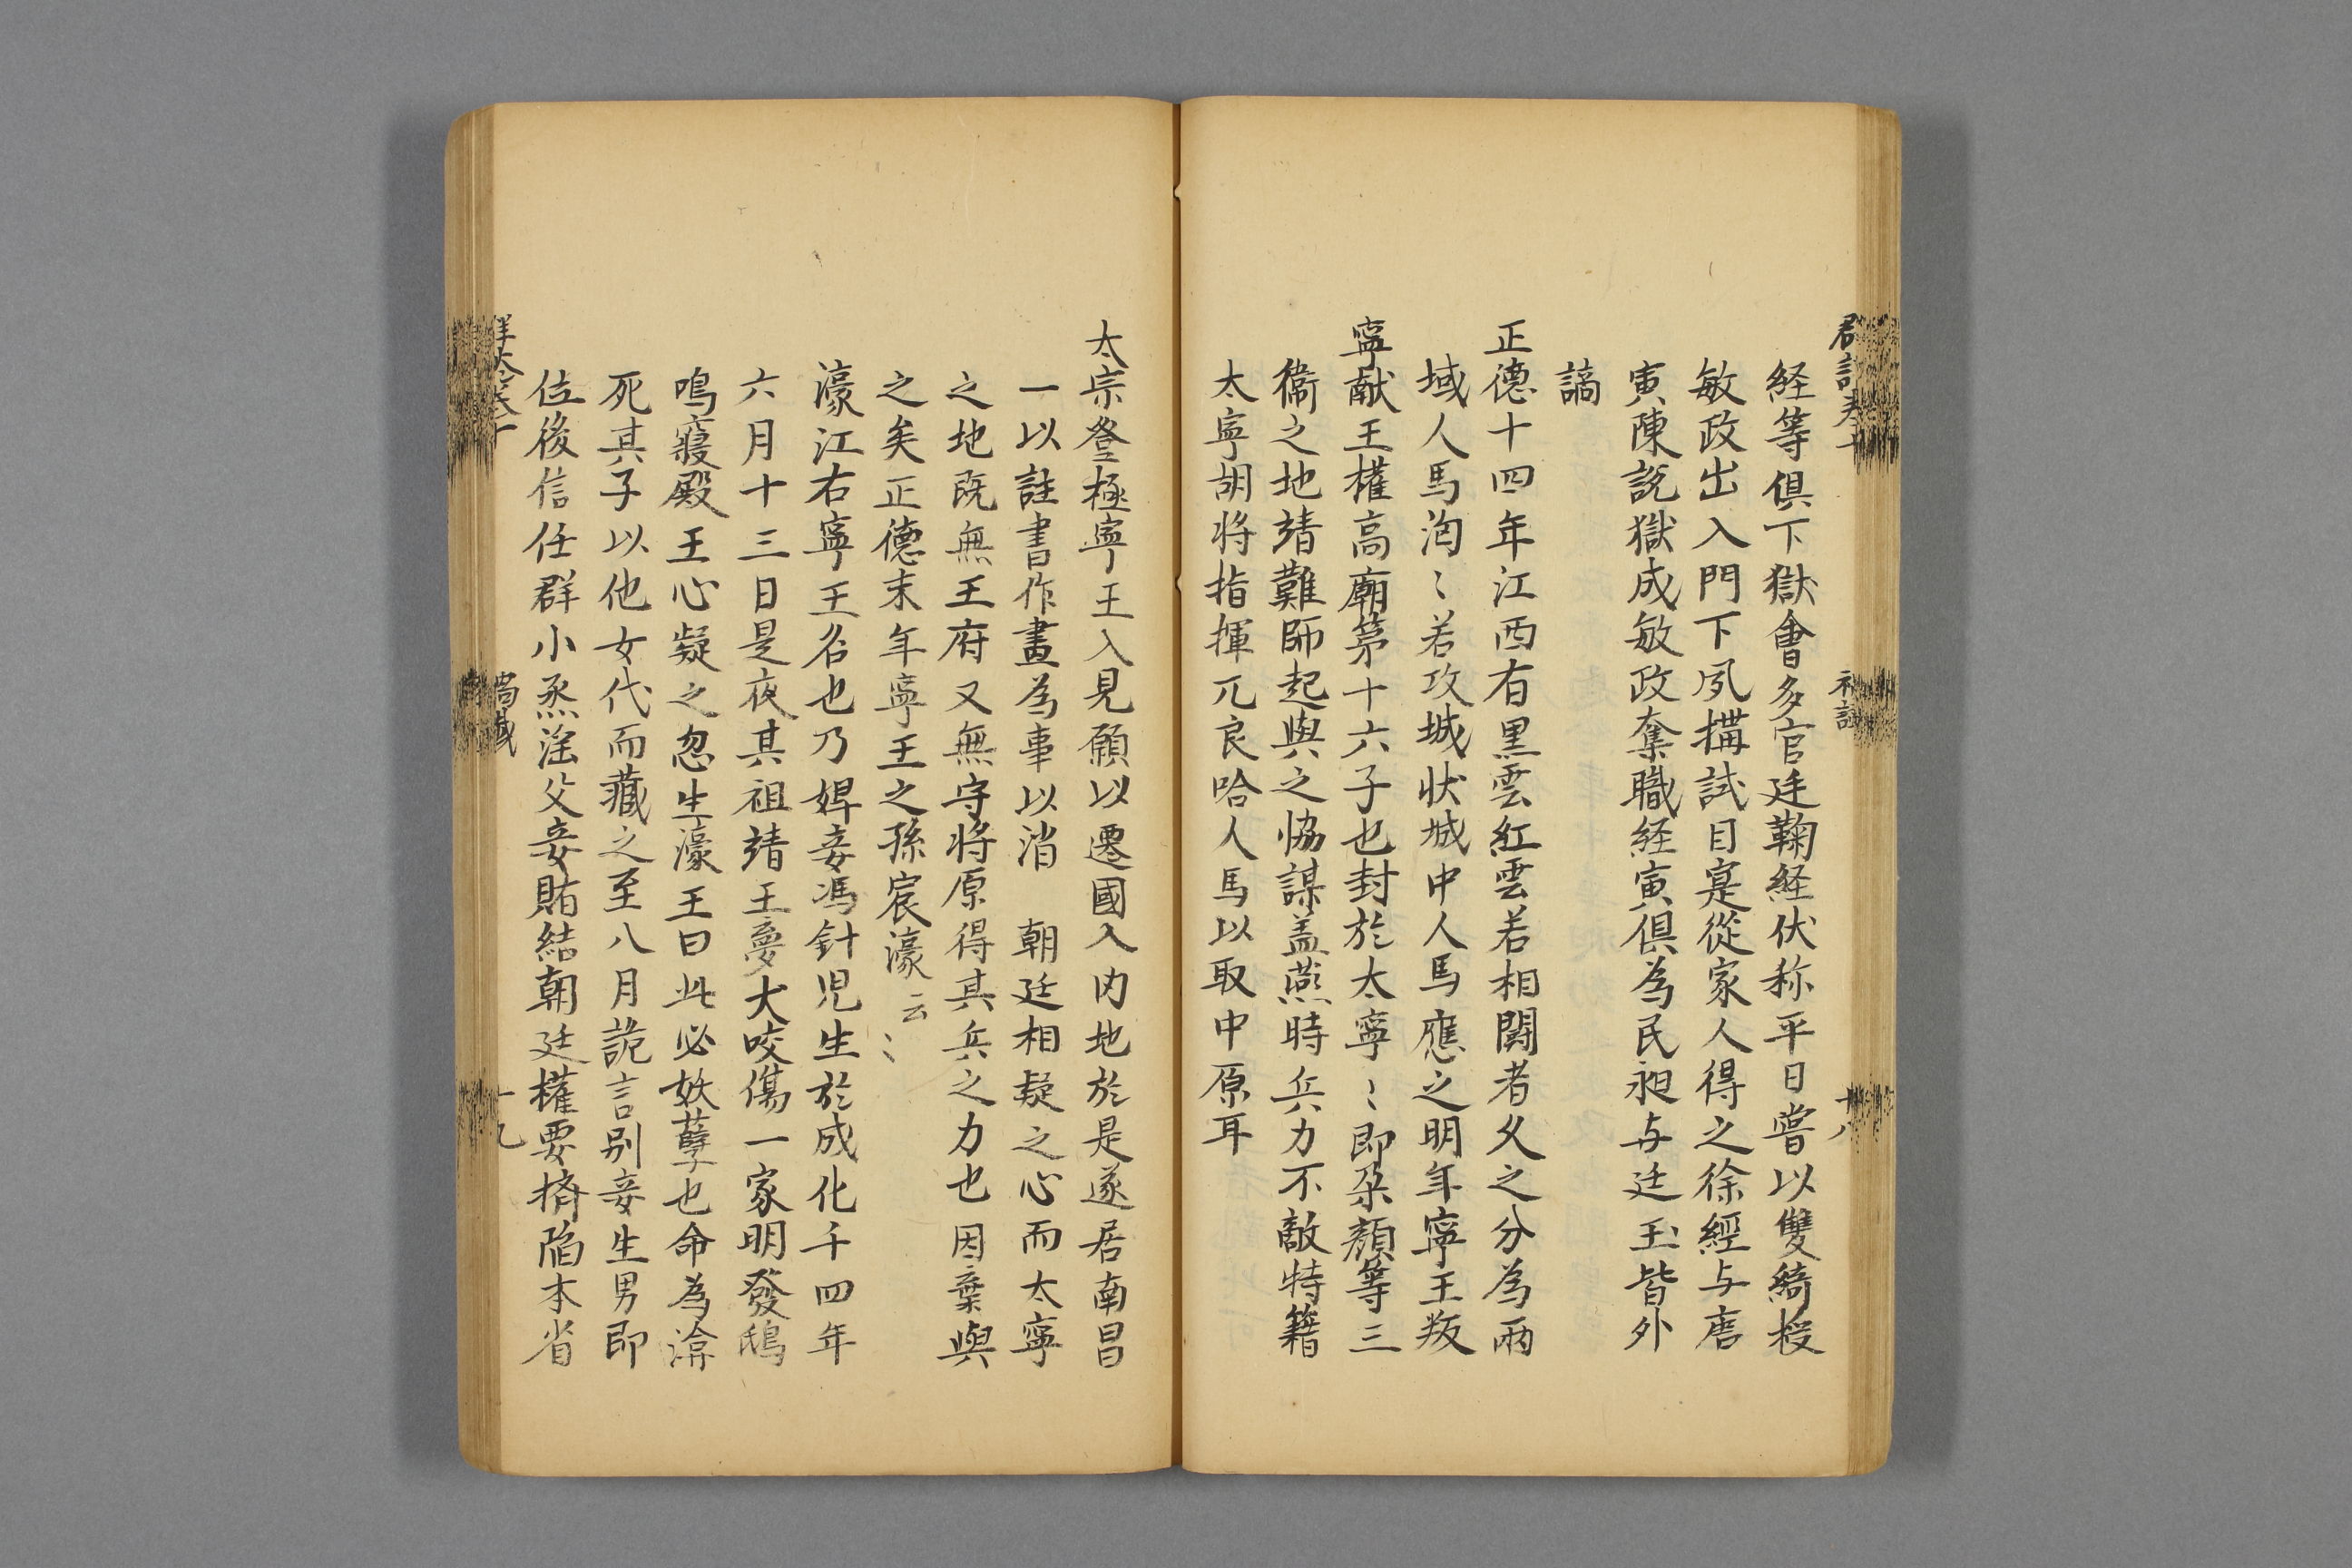 経等俱下獄會多官廷鞠経伏称平日嘗以雙綺授
敏政出入門下夙搆試目寔從家人得之徐經与唐
寅陳說獄成敏政奪職経寅俱為民昶与廷玉皆外
謫
正德十四年江西有黒雲紅雲若相鬪者久之分為兩
域人馬洶〻若攻城状城中人馬應之明年寧王叛
寧献王權高廟第十六子也封於太寧〻即朶顔等三
衞之地靖難師起與之恊謀盖燕時兵力不敵特籍
太寧胡将指揮兀良哈人馬以取中原耳
太宗登極寧王入見願以遷國入内地於是遂居南昌
一以註書作畫為事以消　朝廷相疑之心而太寧
之地既無王府又無守将原得其兵之力也因棄與
之矣正德末年寧王之孫宸濠云〻
濠江右寧王名也乃婢妾馮針児生於成化千四年
六月十三日是夜其祖靖王夢犬咬傷一家明發鴟
鳴寢殿王心疑之忽生濠王曰此必妖孽也命為渰
死其子以他女代而藏之至八月詭言别妾生男即
位後信任群小烝淫父妾賄結朝廷權要擠陷本省
十九